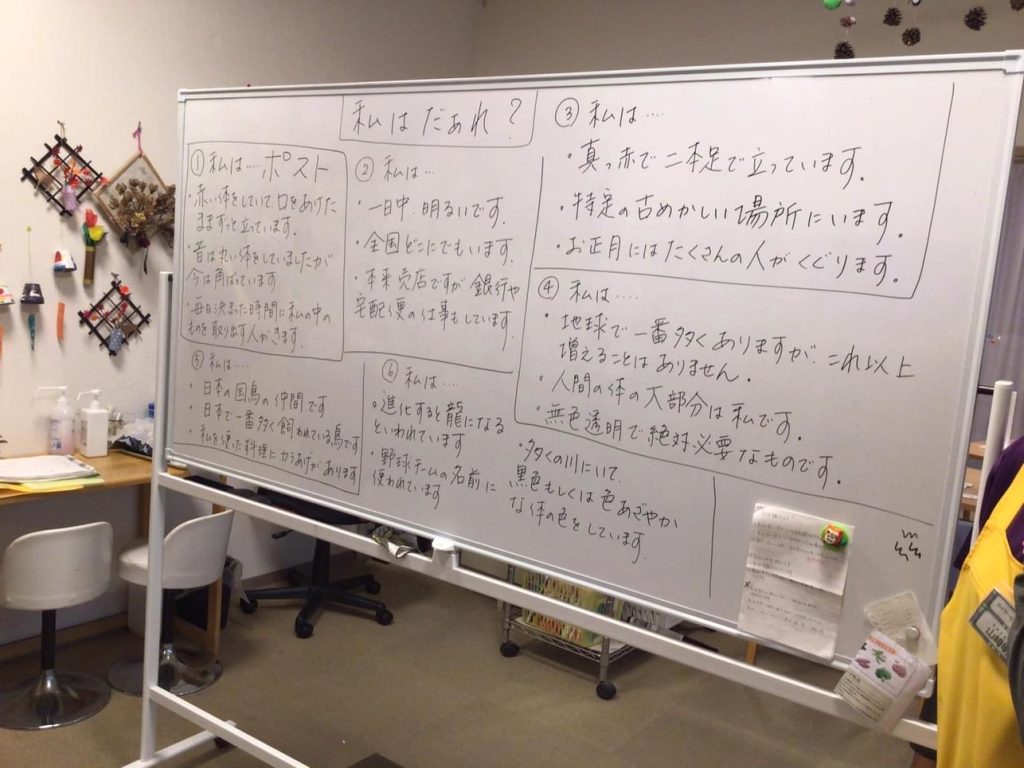 私はだぁれ？
① 私は‥‥ポスト
・赤い体をしていて口をあけた
ままずっと立っています。
・昔は丸い体をしていましたが
今は角ばっています
・毎日決まった時間に私の中の
ものを取り出す人がきます。
② 私は…
・一日中、明るいです。
・全国どこにでもいます。
・本来売店ですが銀行や
宅配便の仕事もしています
③ 私は‥‥
・真っ赤で二本足で立っています。
・特定の古めかしい場所にいます。
・お正月にはたくさんの人がくぐります。
④ 私は‥‥
・地球で一番多くありますが、これ以上
増えることはありません。
・人間の体の大部分は私です。
・無色透明で絶対必要なものです。
⑤ 私は‥‥
・日本の国鳥の仲間です
・日本で一番多く飼われている鳥です
・私を使った料理にからあげがあります
⑥ 私は‥‥
・進化すると龍になる
といわれています
・野球チームの名前に
使われています
・多くの川にいて、
黒色もしくは色あざやか
な体の色をしています。